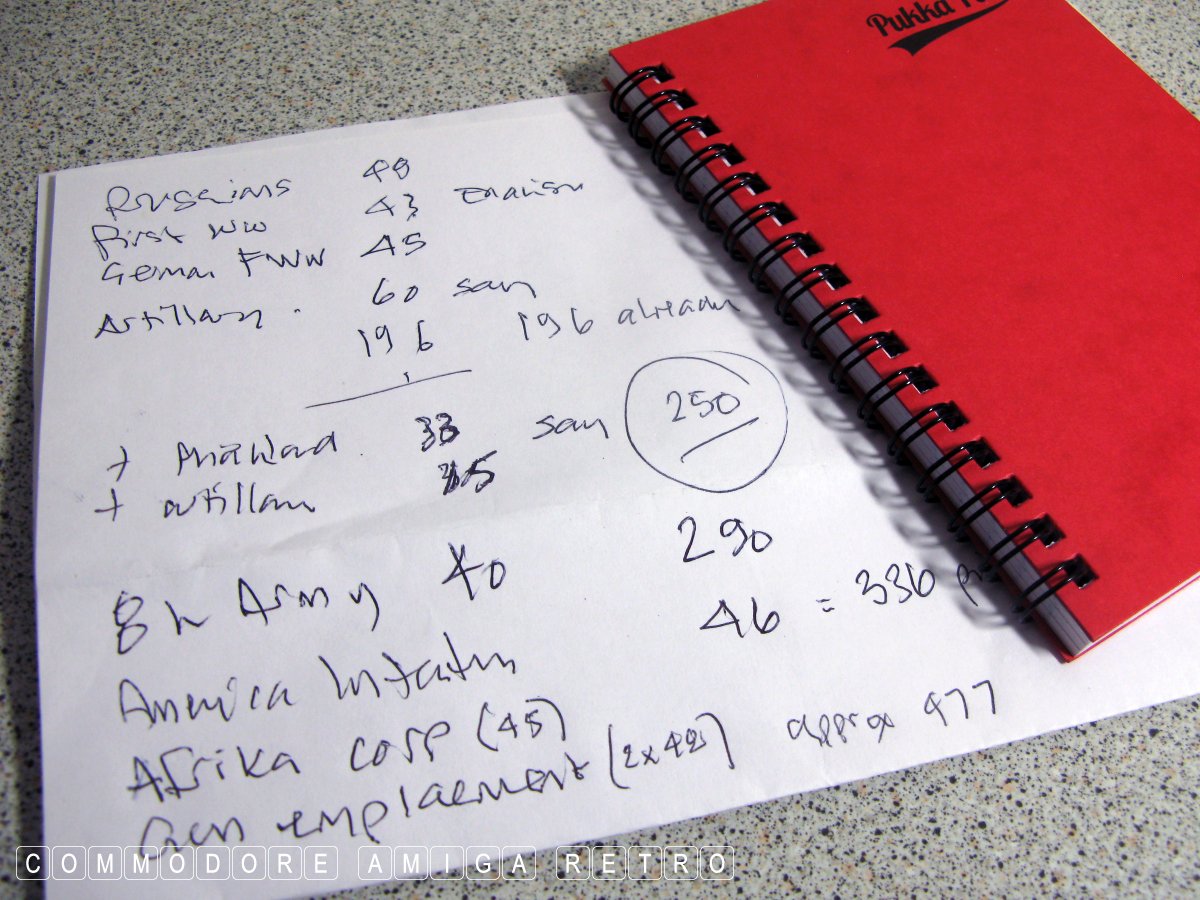 Pukka
Russians 48
First WW 43 English
German FWW 45
Artillary 60 say
196 196 already
+ 33 say 250
+ artillary
290
8th Army 40
46 = 336
America Infantry
Afrika corp (45)
Gun emplacement (2x48) approx 477
COMMODORE AMIGA RETRO